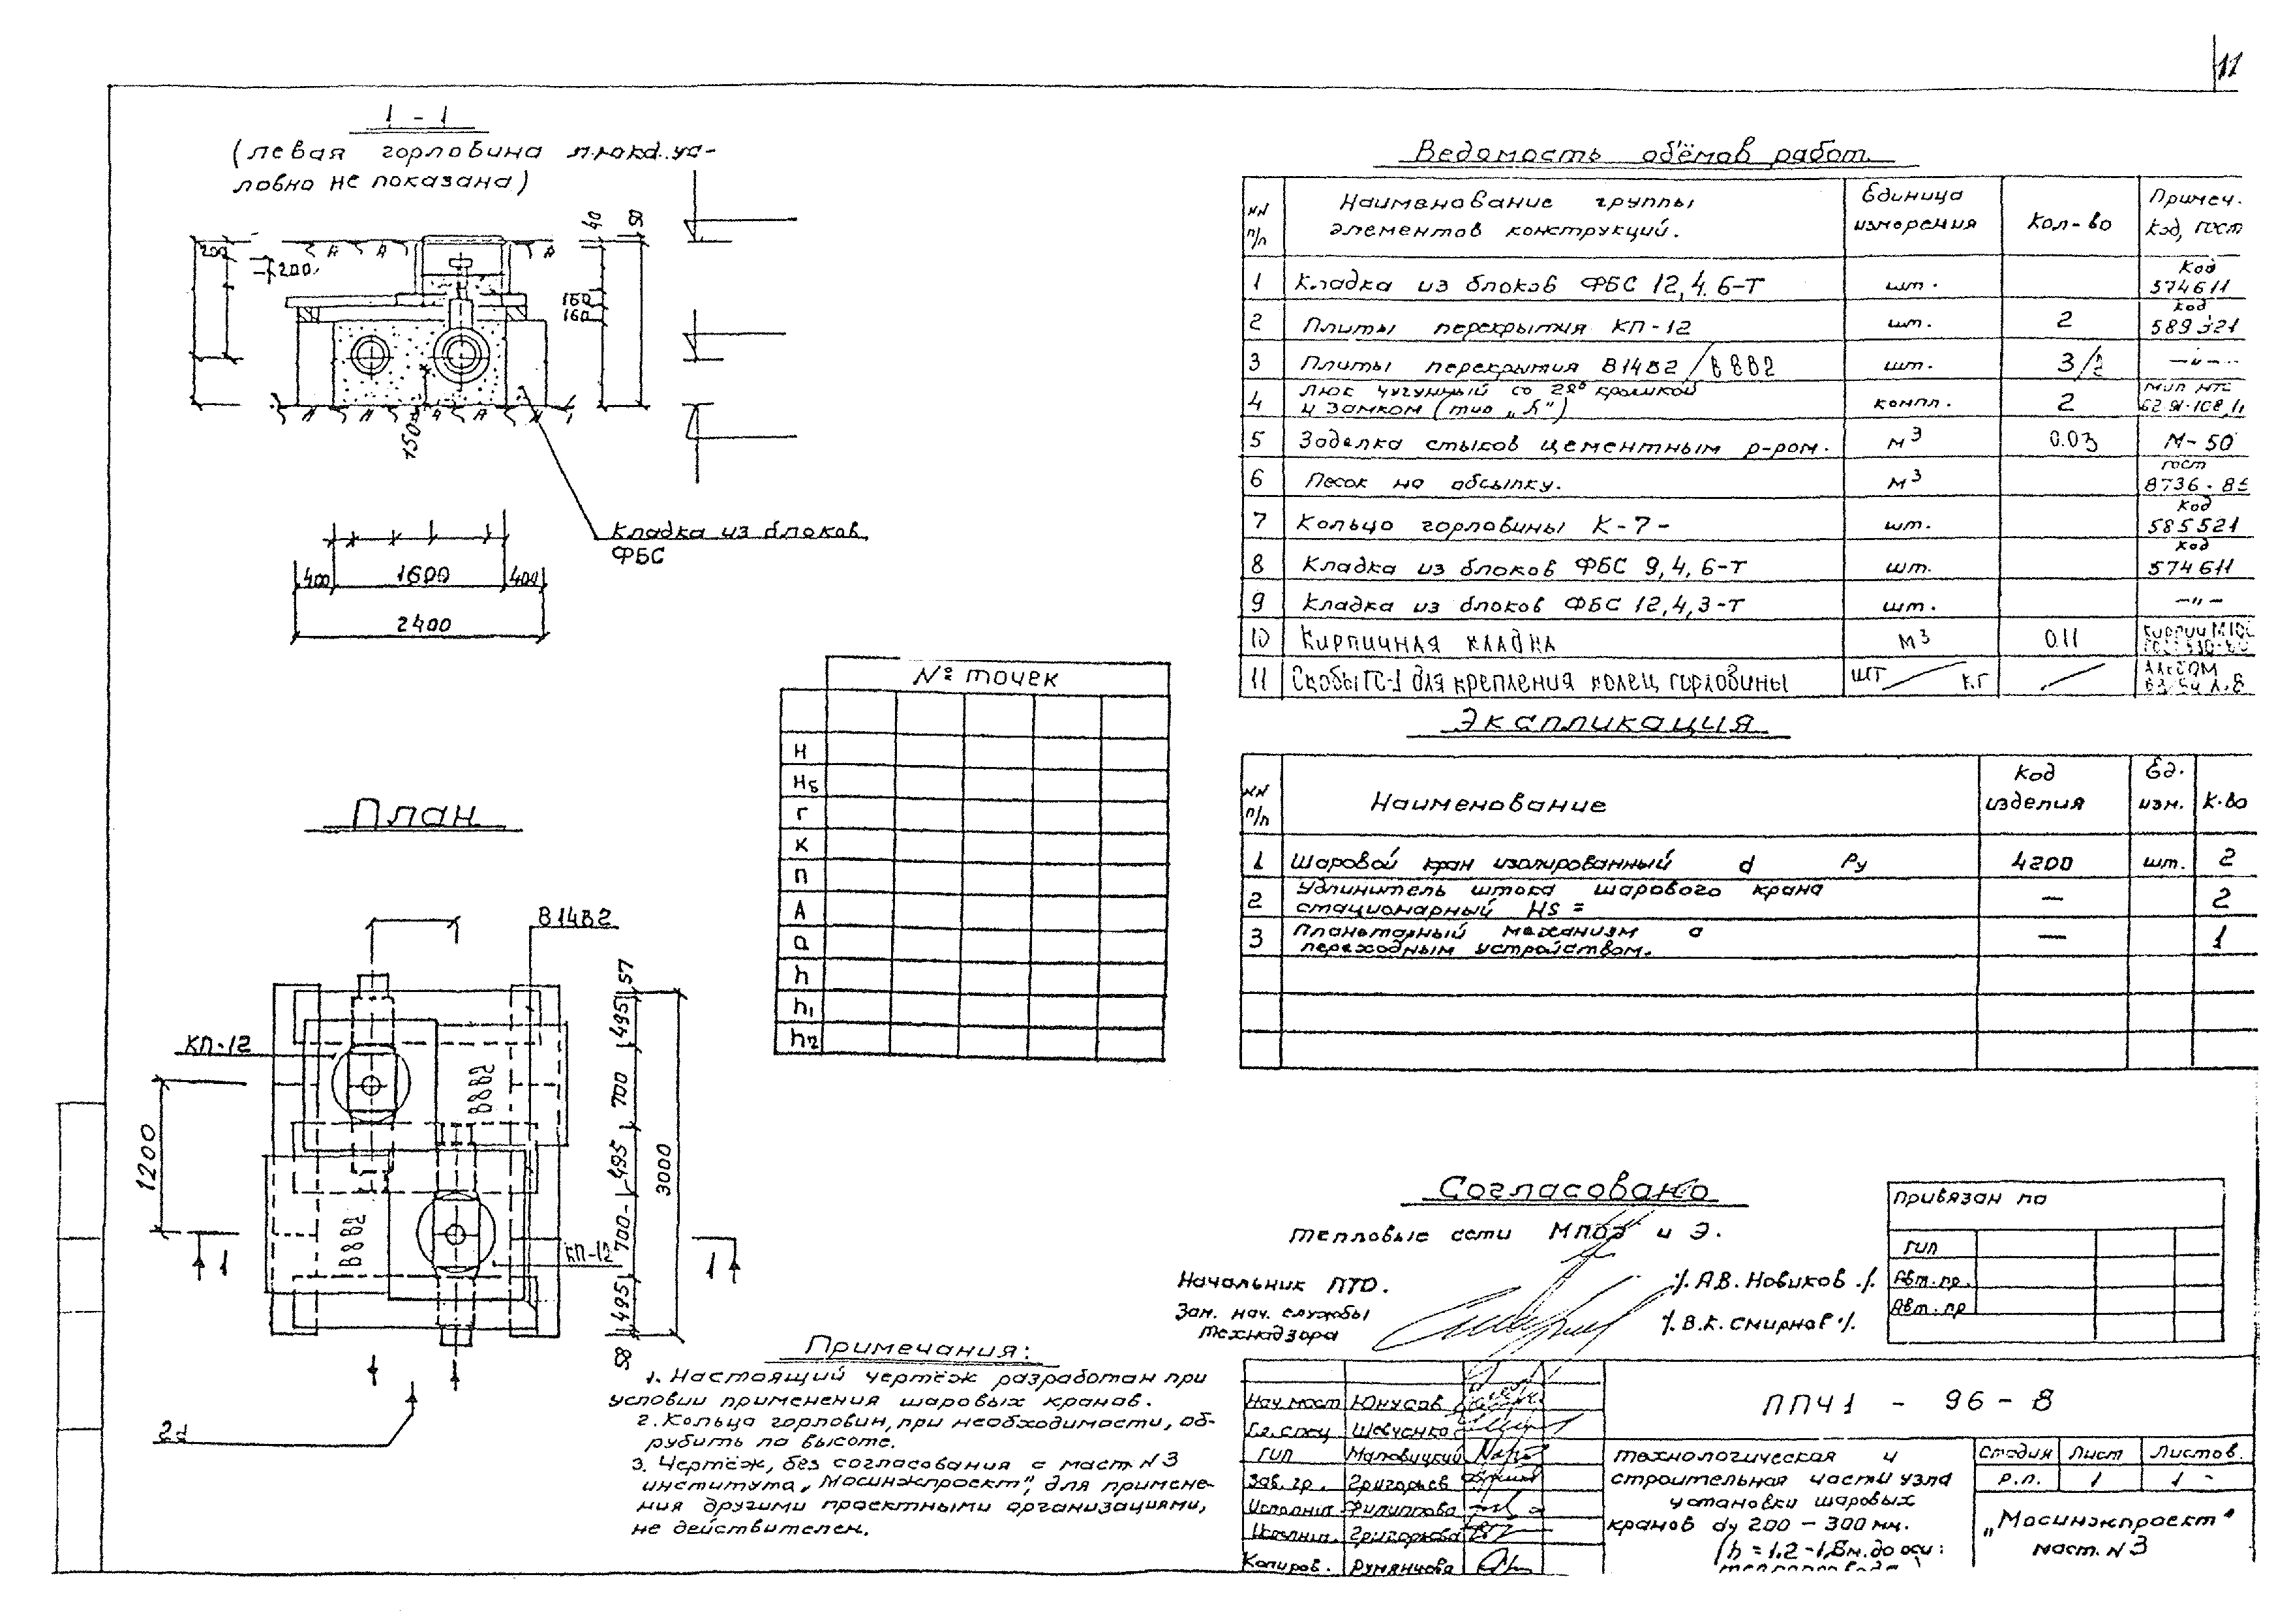 11
1 - 1
(левая горловина
ловно не показана)
200
200
40
50
160
160
150
Кладка из блоков
ФБС
400 1600 400
2400
План
В14В2
КП-12
В8В2
В8В2
КП-12
1200
57
495
700
495
700
495
58
3000
1 1
2d
№ точек
Н
Нб
Г
К
П
А
а
h
h1
h2
Ведомость объёмов работ
NN п/п Наименование группы элементов конструкций. Единица измерения Кол-во Примеч. Код, ГОСТ
1 Кладка из блоков ФБС 12,4.6-Т шт. Код 574611
2 Плиты перекрытия КП-12 шт. 2 Код 589321
3 Плиты перекрытия В14В2/В8В2 шт. 3/2 —"—
4 Люк чугунный со 2ой крышкой и замком (тип „Л") компл. 2
5 Заделка стыков цементным р-ром. м3 0.03 М-50
6 Песок на обсыпку. м3 ГОСТ 8736-85
7 Кольцо горловины К-7- шт. Код 585521
8 Кладка из блоков ФБС 9,4,6-Т шт. Код 574611
9 Кладка из блоков ФБС 12,4,3-Т шт. —"—
10 Кирпичная кладка м3 0.11 Кирпич М100
11 Скобы ГС-1 для крепления колец горловины шт / кг / Альбом
Экспликация
NN п/п Наименование Код изделия Ед. изм. К-во
1 Шаровой кран изолированный d Ру 4200 шт. 2
2 Удлинитель штока шарового крана стационарный Нs = — 2
3 Планетарный механизм с переходным устройством. — 1
Согласовано
тепловые сети и Э.
Начальник ПТО. /. А.В. Новиков ./.
Зам. нач. службы
технадзора /. В.К. Смирнов ./.
Привязан по
ГИП
Авт. пр.
Авт. пр
Примечания:
1. Настоящий чертёж разработан при
условии применения шаровых кранов.
2. Кольца горловин, при необходимости, об-
рубить по высоте.
3. Чертёж, без согласования с маст. N3
института „Мосинжпроект", для примене-
ния другими проектными организациями,
не действителен.
Нач. маст Юнусов
Гл. спец Шевченко
ГИП Маловицкий
Зав. гр. Григорьев
Исполнил Филиппова
Исполнил. Григорьева
Копиров. Румянцева
ППЧ1 - 96 - 8
технологическая и
строительная части узла
установки шаровых
кранов dу 200 - 300 мм.
(h = 1,2 - 1,8м. до оси
Стадия Лист Листов.
Р.П. 1 1
„Мосинжпроект"
маст. N3